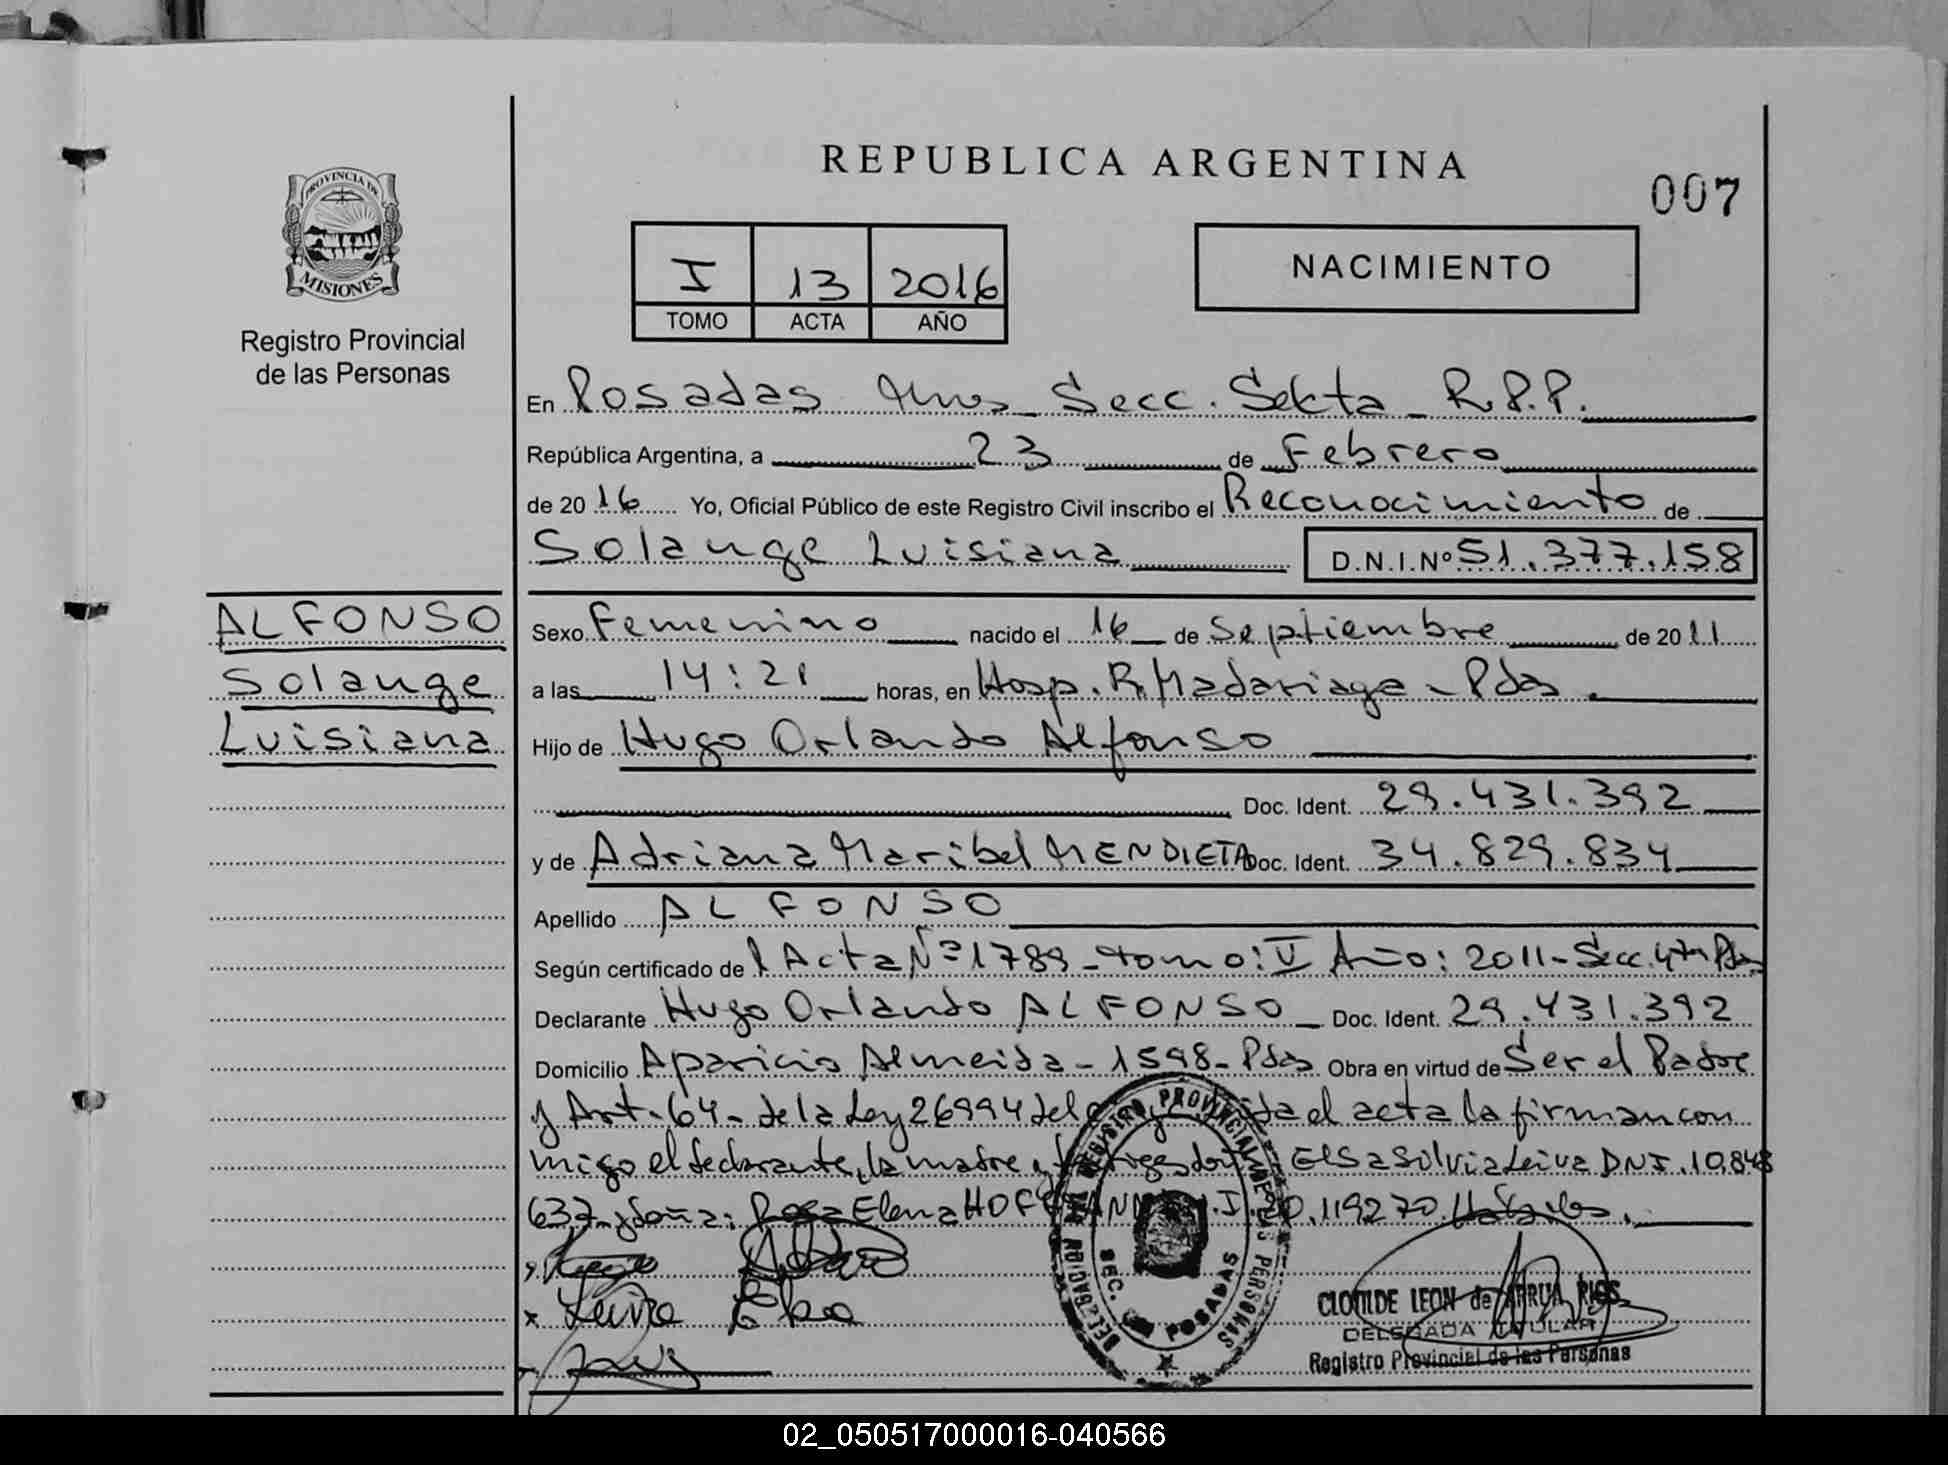 REPUBLICA ARGENTINA
007
PROVINCIA DE
MISIONES
Registro Provincial
de las Personas
I 13 2016
TOMO ACTA AÑO
NACIMIENTO
En Posadas Mnes Secc. Sekta R.P.P.
República Argentina, a 23 de Febrero
de 20 16 Yo, Oficial Público de este Registro Civil inscribo el Reconocimiento de
Solange Luisiana D.N.I. Nº 51.377.158
ALFONSO
Solange
Luisiana
Sexo Femenino nacido el 16 de Septiembre de 20 11
a las 14:21 horas, en Hosp. R. Madariaga - Pdas.
Hijo de Hugo Orlando Alfonso
Doc. Ident. 29.431.392
y de Adriana Maribel MENDIETA Doc. Ident. 34.829.834
Apellido ALFONSO
Según certificado de Acta Nº 1789 - tomo: V Año: 2011 - Secc. 4ta Pdas
Declarante Hugo Orlando ALFONSO Doc. Ident. 29.431.392
Domicilio Aparicio Almeida - 1598 - Pdas Obra en virtud de Ser el Padre
y Art. 64 - de la Ley 26994 del el acta la firman con
migo el declarante, la madre y Elsa Silvia Leiva DNI. 10.848
637 - y doña: Rosa Elena 119270. Hábiles.
Leiva Elsa
REGISTRO PROVINCIAL DE LAS PERSONAS
SEC. POSADAS
CLOTILDE LEON de ARRUA RIOS
DELEGADA TITULAR
Registro Provincial de las Personas
02_050517000016-040566